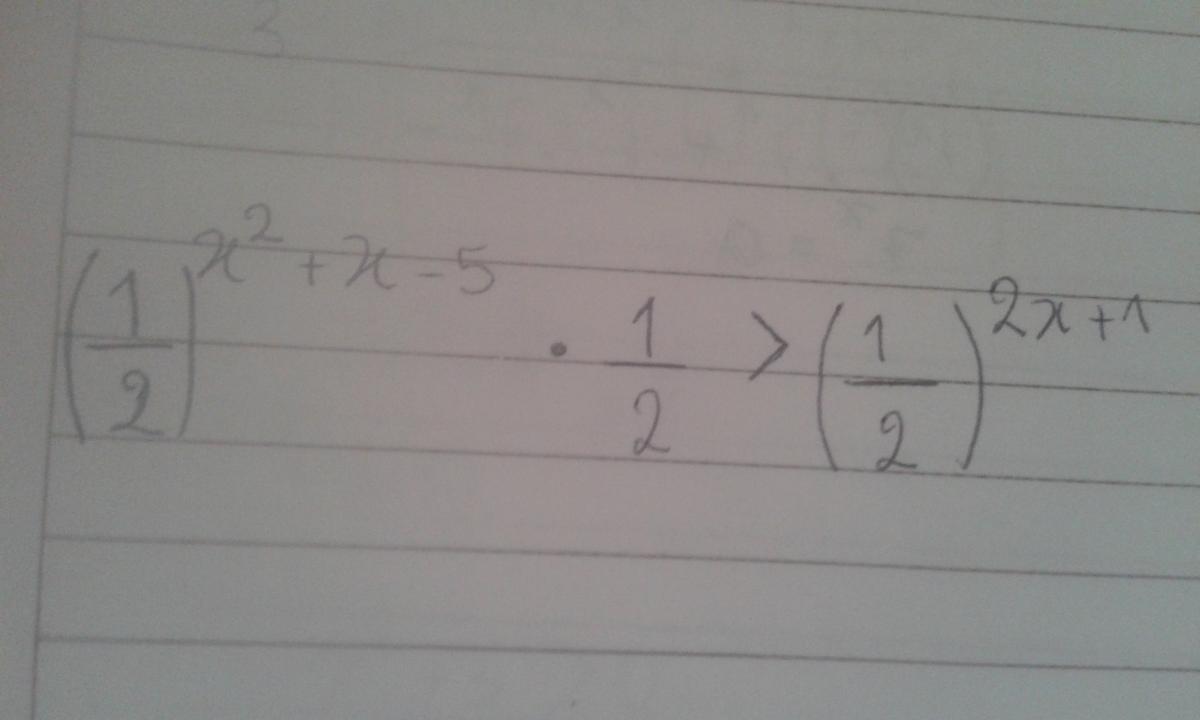 (1/2)^(x²+x-5) · 1/2 > (1/2)^(2x+1)